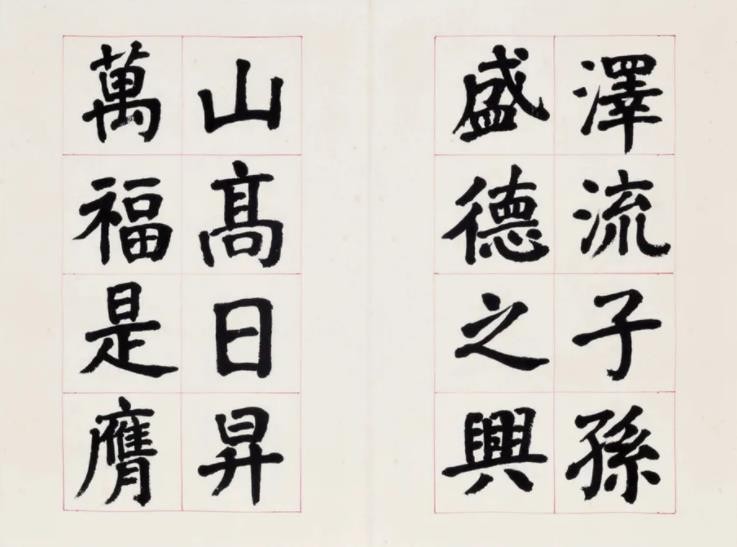 澤流子孫
盛德之興
山高日昇
萬福是膺